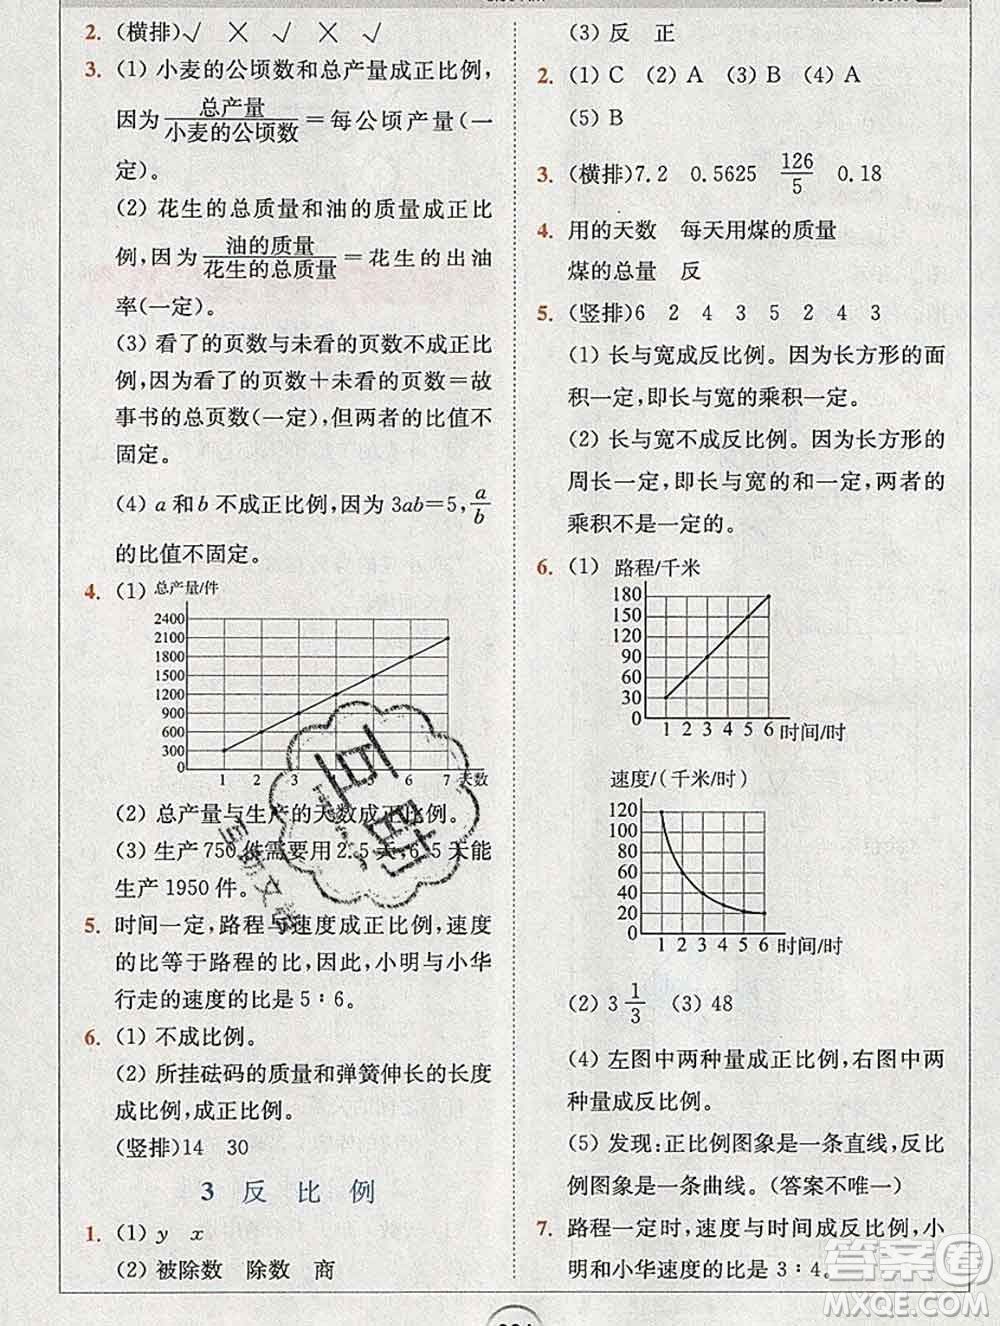 2. (横排)√ × √ × √
3. (1) 小麦的公顷数和总产量成正比例,
因为 总产量/小麦的公顷数 =每公顷产量(一
定)。
(2) 花生的总质量和油的质量成正比
例,因为 油的质量/花生的总质量 =花生的出油
率(一定)。
(3) 看了的页数与未看的页数不成正比
例,因为看了的页数+未看的页数=故
事书的总页数(一定),但两者的比值不
固定。
(4) a 和 b 不成正比例,因为 3ab=5, a/b
的比值不固定。
4. (1) 总产量/件
2400
2100
1800
1500
1200
900
600
300
0
1 2 3 4 5 6 7 天数
(2) 总产量与生产的天数成正比例。
(3) 生产 750 件需要用 2.5 天,6.5 天能
生产 1950 件。
5. 时间一定,路程与速度成正比例,速度
的比等于路程的比,因此,小明与小华
行走的速度的比是 5∶6。
6. (1) 不成比例。
(2) 所挂砝码的质量和弹簧伸长的长度
成比例,成正比例。
(竖排)14 30
3 反 比 例
1. (1) y x
(2) 被除数 除数 商
(3) 反 正
2. (1) C (2) A (3) B (4) A
(5) B
3. (横排)7.2 0.5625 126/5 0.18
4. 用的天数 每天用煤的质量
煤的总量 反
5. (竖排)6 2 4 3 5 2 4 3
(1) 长与宽成反比例。因为长方形的面
积一定,即长与宽的乘积一定。
(2) 长与宽不成反比例。因为长方形的
周长一定,即长与宽的和一定,两者的
乘积不是一定的。
6. (1) 路程/千米
180
150
120
90
60
30
0
1 2 3 4 5 6 时间/时
速度/(千米/时)
120
100
80
60
40
20
0
1 2 3 4 5 6 时间/时
(2) 3 1/3 (3) 48
(4) 左图中两种量成正比例,右图中两
种量成反比例。
(5) 发现:正比例图象是一条直线,反比
例图象是一条曲线。(答案不唯一)
7. 路程一定时,速度与时间成反比例,小
明和小华速度的比是 3∶4。
互助
互助文卷
答案圈
MXQE.COM